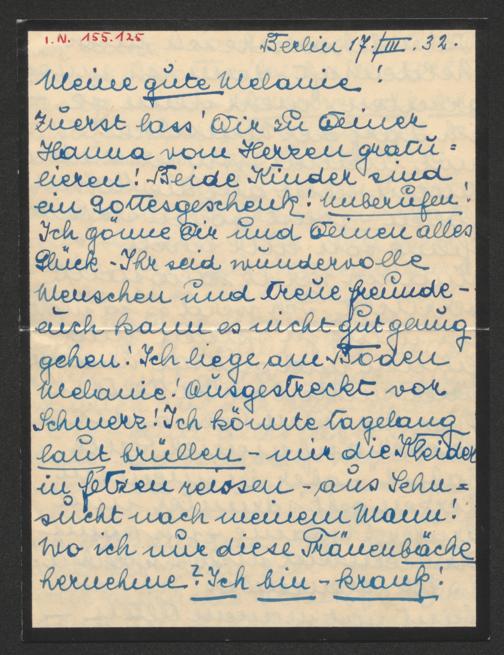 I.N. 155.125
Berlin 17./III. 32.
Meine gute Melanie!
Zuerst lass' Dir zu Deiner
Hanna vom Herzen gratu=
lieren! Beide Kinder sind
ein Gottesgeschenk! Unberufen!
Ich gönne Dir und Deinen alles
Glück - Ihr seid wundervolle
Menschen und treue Freunde -
euch kann es nicht gut genug
gehen! Ich liege am Boden
Melanie! Ausgestreckt vor
Schmerz! Ich könnte tagelang
laut brüllen - mir die Kleider
in Fetzen reissen - aus Sehn=
sucht nach meinem Mann!
Wo ich nur diese Tränenbäche
hernehme? Ich bin - krank!